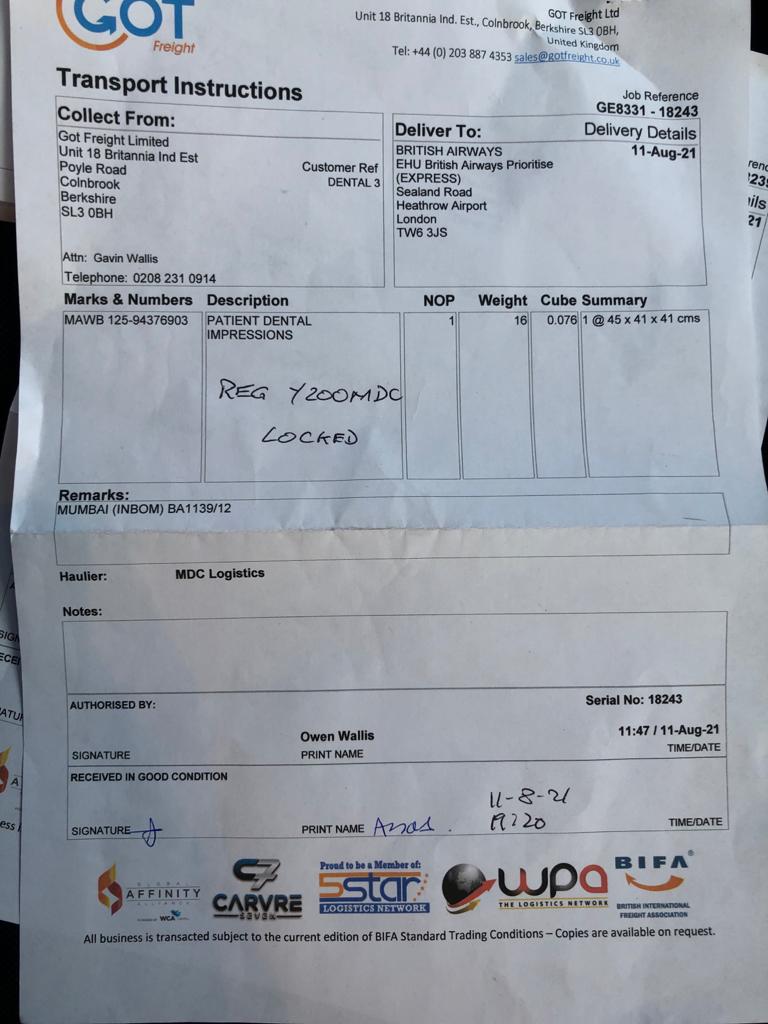 GOT
Freight
GOT Freight Ltd
Unit 18 Britannia Ind. Est., Colnbrook, Berkshire SL3 0BH,
United Kingdom
Tel: +44 (0) 203 887 4353 sales@gotfreight.co.uk
Transport Instructions
Job Reference
GE8331 - 18243
Collect From:
Got Freight Limited
Unit 18 Britannia Ind Est
Poyle Road
Colnbrook
Berkshire
SL3 0BH
Customer Ref
DENTAL 3
Attn: Gavin Wallis
Telephone: 0208 231 0914
Deliver To:
Delivery Details
BRITISH AIRWAYS
11-Aug-21
EHU British Airways Prioritise
(EXPRESS)
Sealand Road
Heathrow Airport
London
TW6 3JS
Marks & Numbers Description NOP Weight Cube Summary
MAWB 125-94376903 PATIENT DENTAL 1 16 0.076 1 @ 45 x 41 x 41 cms
IMPRESSIONS
REG Y200MDC
LOCKED
Remarks:
MUMBAI (INBOM) BA1139/12
Haulier: MDC Logistics
Notes:
AUTHORISED BY: Serial No: 18243
Owen Wallis 11:47 / 11-Aug-21
SIGNATURE PRINT NAME TIME/DATE
RECEIVED IN GOOD CONDITION
11-8-21
SIGNATURE PRINT NAME 19:20 TIME/DATE
GLOBAL
AFFINITY
ALLIANCE
WCA
C7
CARVRE
SEVEN
Proud to be a Member of:
5star
LOGISTICS NETWORK
wpa
THE LOGISTICS NETWORK
BIFA
BRITISH INTERNATIONAL
FREIGHT ASSOCIATION
All business is transacted subject to the current edition of BIFA Standard Trading Conditions – Copies are available on request.